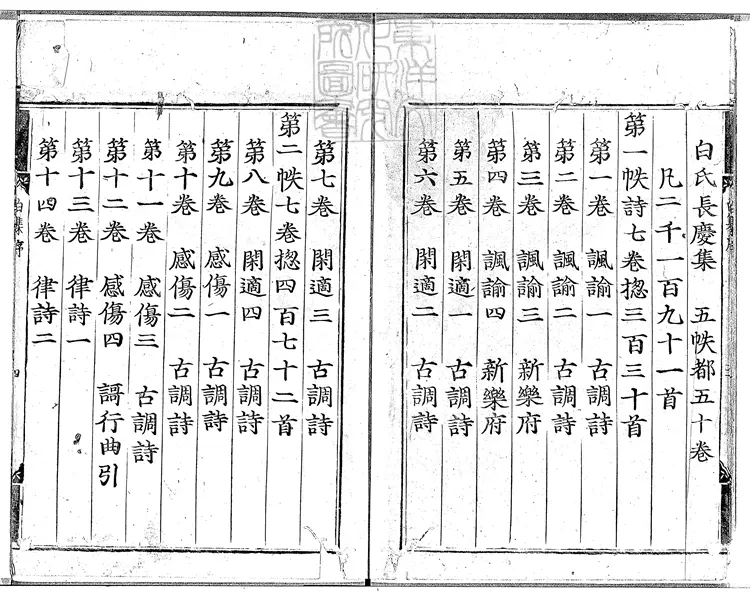 白氏長慶集　五帙都五十卷
凡二千一百九十一首
第一帙詩七卷揔三百三十首
第一卷　諷諭一　古調詩
第二卷　諷諭二　古調詩
第三卷　諷諭三　新樂府
第四卷　諷諭四　新樂府
第五卷　閑適一　古調詩
第六卷　閑適二　古調詩
第七卷　閑適三　古調詩
第二帙七卷揔四百七十二首
第八卷　閑適四　古調詩
第九卷　感傷一　古調詩
第十卷　感傷二　古調詩
第十一卷　感傷三　古調詩
第十二卷　感傷四　謌行曲引
第十三卷　律詩一
第十四卷　律詩二
白集序
四